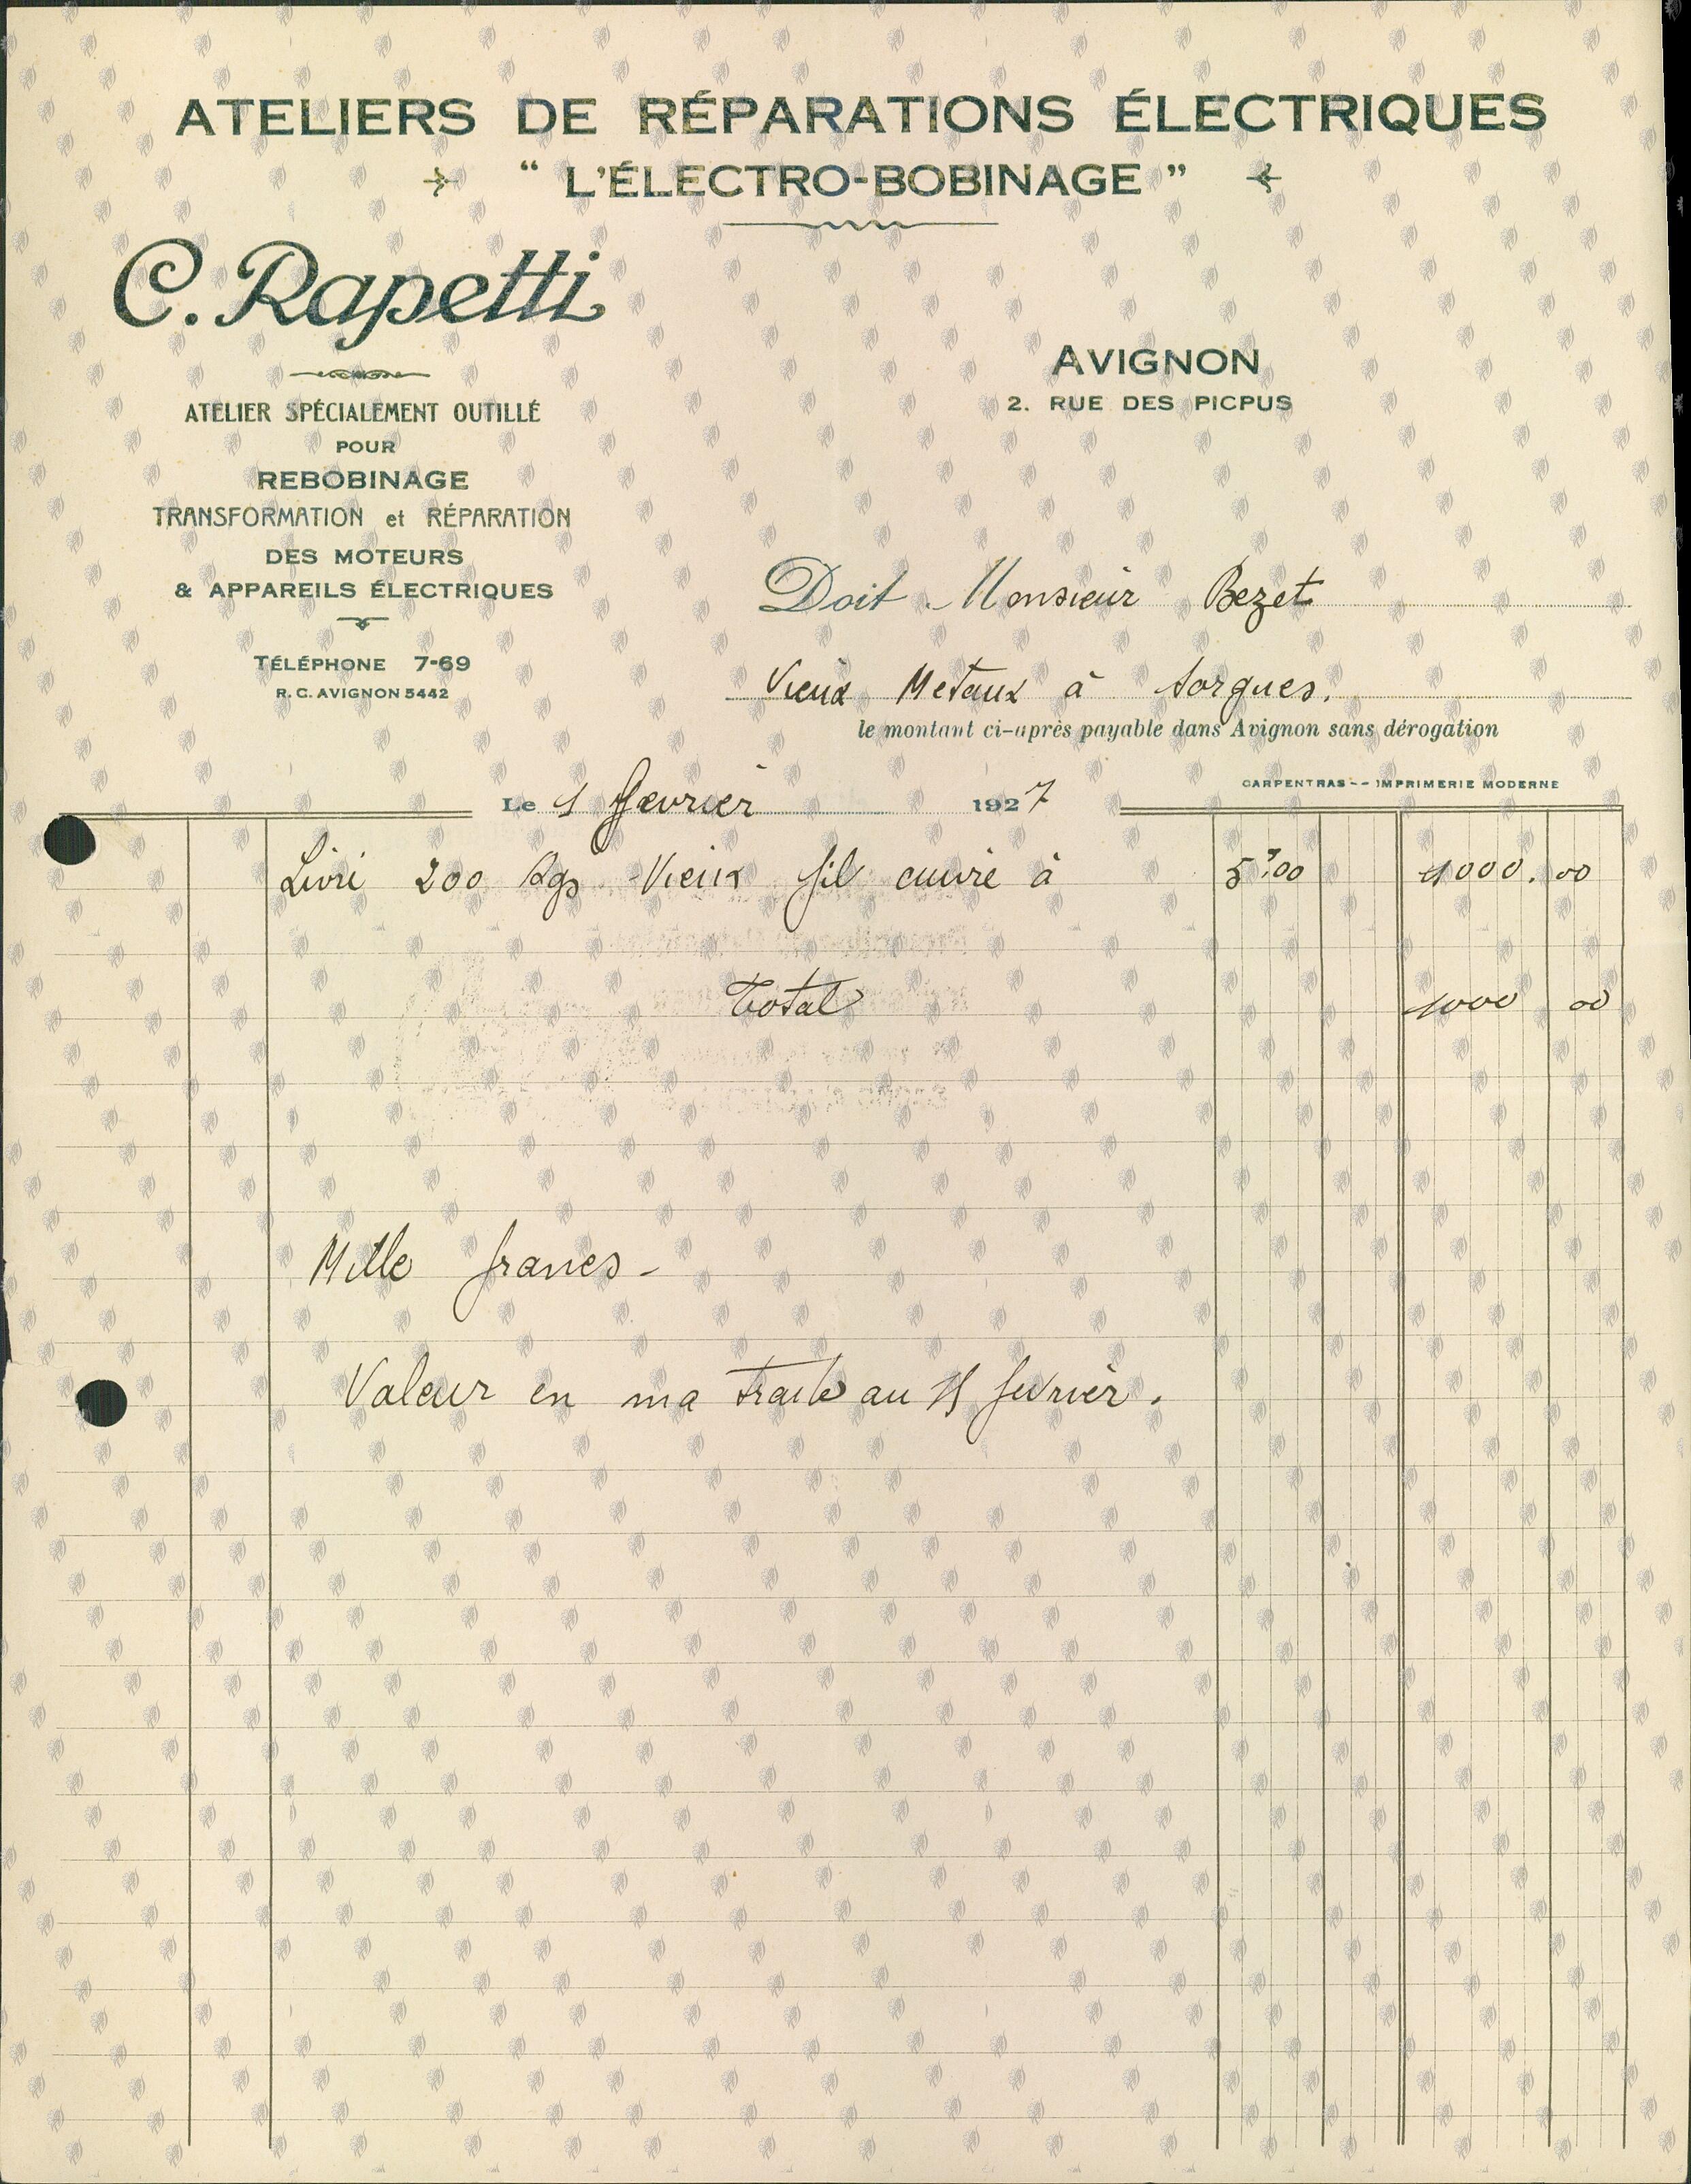 ATELIERS DE RÉPARATIONS ÉLECTRIQUES
“ L'ÉLECTRO-BOBINAGE ”
C. Rapetti
AVIGNON
2. RUE DES PICPUS
ATELIER SPÉCIALEMENT OUTILLÉ
POUR
REBOBINAGE
TRANSFORMATION et RÉPARATION
DES MOTEURS
& APPAREILS ÉLECTRIQUES
TÉLÉPHONE 7-69
R. C. AVIGNON 5442
Doit Monsieur Bezet
Vieux Metaux à Sorgues.
le montant ci-après payable dans Avignon sans dérogation
CARPENTRAS -- IMPRIMERIE MODERNE
Le 1 fevrier 1927
Livré 200 Kgs Vieux fil cuivre à 5f00 1000.00
Total 1000 00
Mille francs -
Valeur en ma traite au 15 fevrier.